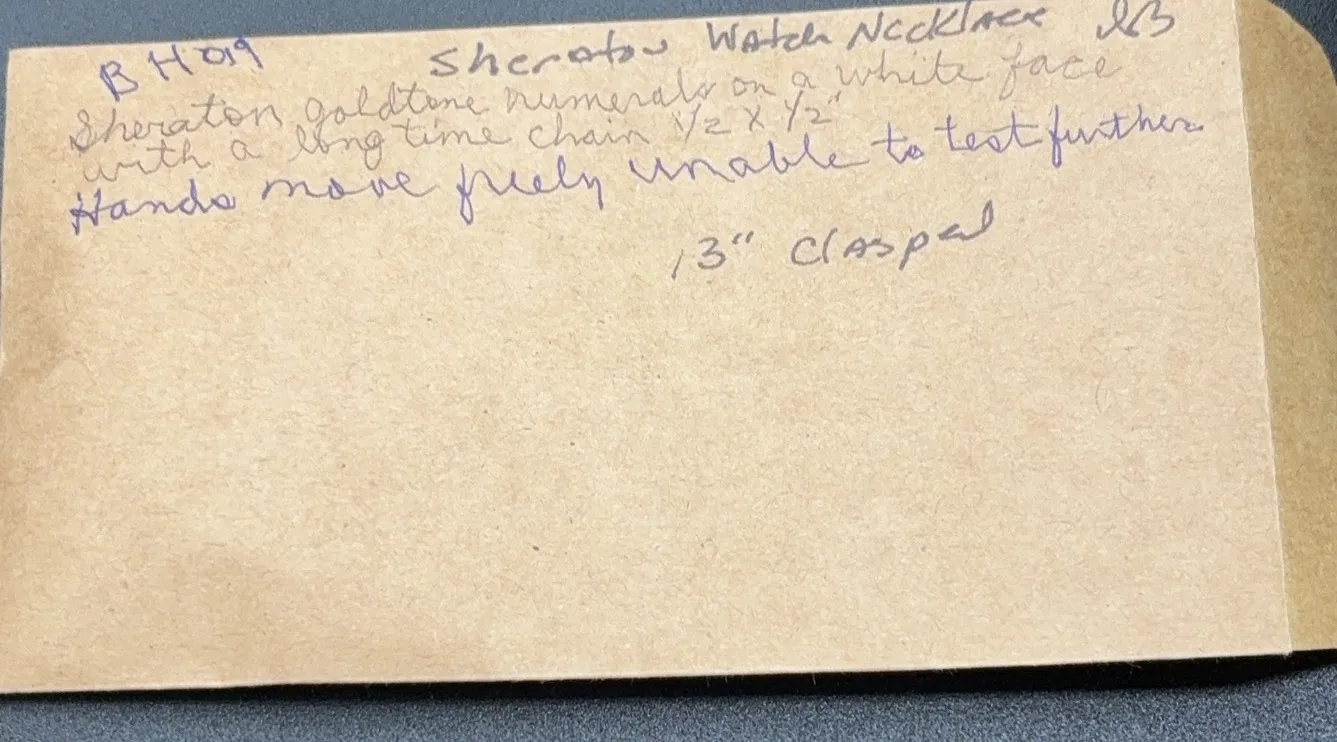 BH019 Sheraton Watch Necklace
Sheraton goldtone numerals on a white face
with a long time chain 1/2 X 1/2"
Hands move freely unable to test further
13" Clasped